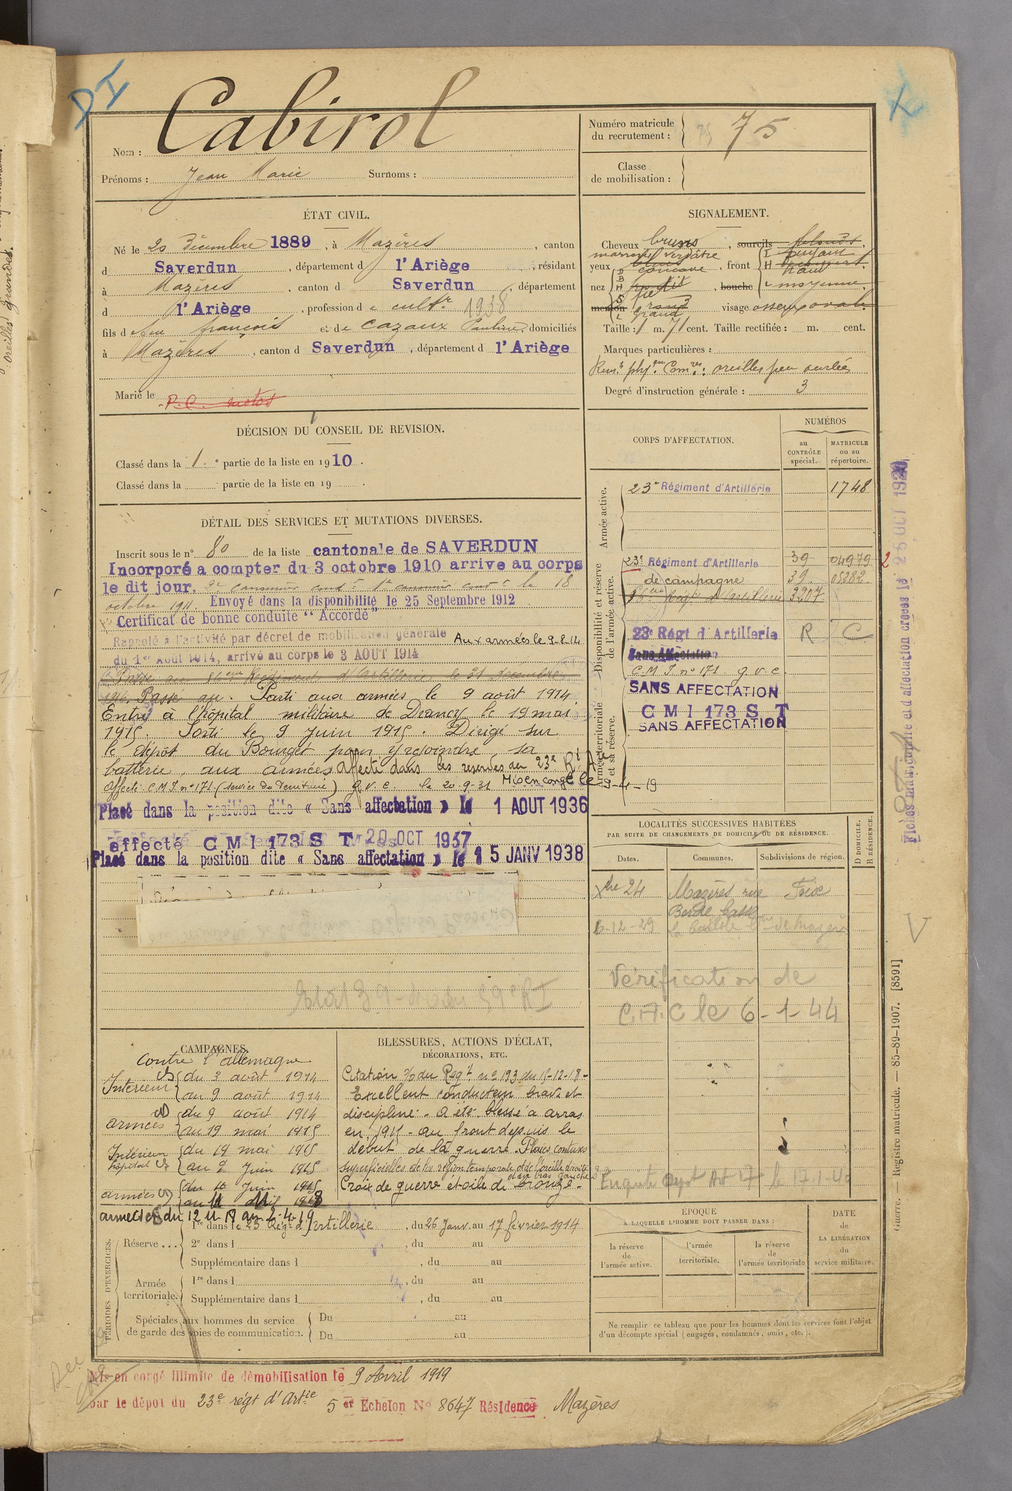 DI
Nom : Cabirol
Prénoms : Jean Marie Surnoms :
Numéro matricule du recrutement : 75
Classe de mobilisation :
ÉTAT CIVIL.
Né le 20 Décembre 1889, à Mazères, canton
d Saverdun, département d l'Ariège, résidant
à Mazères, canton d Saverdun, département
d l'Ariège, profession de cultr 1938
fils de feu françois et de Cazaux domiciliés
à Mazères, canton d Saverdun, département d l'Ariège
Marié le
SIGNALEMENT.
Cheveux bruns, sourcils
yeux marrons verdâtre, front
nez, bouche moyenne,
menton visage osseux ovale
Taille : 1 m. 71 cent. Taille rectifiée : m. cent.
Marques particulières :
Rens. phys. Com. : oreilles peu ourlées
Degré d'instruction générale : 3
DÉCISION DU CONSEIL DE REVISION.
Classé dans la 1e partie de la liste en 1910.
Classé dans la partie de la liste en 19
DÉTAIL DES SERVICES ET MUTATIONS DIVERSES.
Inscrit sous le n° 80 de la liste cantonale de SAVERDUN
Incorporé a compter du 3 octobre 1910 arrive au corps
le dit jour, 2e canonnier condr 1er canonnier condr le 18
octobre 1911. Envoyé dans la disponibilité le 25 Septembre 1912
Certificat de bonne conduite "Accordé"
Rappelé à l'activité par décret de mobilisation générale Aux armées le 9.8.14
du 1er Août 1914, arrivé au corps le 3 AOUT 1914
Passé au Régiment d'artillerie le 31 décembre
Passé au. Parti aux armées le 9 août 1914.
Entré à l'hôpital militaire de Drancy le 19 mai
1915. Sorti le 9 Juin 1915. Dirigé sur
le dépôt du Bourget pour y rejoindre sa
batterie aux armées Affecté dans les réserves du 23e Rt Art
Affecté C.M.I. n° 171 (service de Territoire) g.v.c. le 20-9-31 Mis en congé le 9-4-19
Placé dans la position dite « Sans affectation » le 1 AOUT 1936
affecté C M I 173 S T 20 OCT 1937
Placé dans la position dite « Sans affectation » le 15 JANV 1938
CORPS D'AFFECTATION.
NUMÉROS
au CONTRÔLE spécial.
MATRICULE ou au répertoire.
Armée active.
23e Régiment d'Artillerie 1748
Disponibilité et réserve de l'armée active.
23e Régiment d'Artillerie 39 04979
de campagne 39. 05382
3207
23e Régt d'Artillerie R C
Sans Affectation
C.M.I. n° 171 g.v.c.
SANS AFFECTATION
C M I 173 S T
SANS AFFECTATION
Armée territoriale et sa réserve.
LOCALITÉS SUCCESSIVES HABITÉES
PAR SUITE DE CHANGEMENTS DE DOMICILE OU DE RÉSIDENCE.
Dates. Communes. Subdivisions de région.
D DOMICILE. R RÉSIDENCE.
Xbre 24 Mazères rue Foix
6-12-29
Vérification de
C.A.C le 6-1-44
CAMPAGNES.
Contre l'allemagne
Intérieur du 3 août 1914
au 9 août 1914
armées du 9 août 1914
au 19 mai 1915
Intérieur hôpital du 19 mai 1915
au 9 Juin 1915
armées du 10 Juin 1915
au 11 1918
armées du 12 11 18 au 2-4-19
BLESSURES, ACTIONS D'ÉCLAT, DÉCORATIONS, ETC.
Citation % du Régt n° 193 du 15-12-18-
Excellent conducteur brave et
discipliné. - a été blessé à arras
en 1915 - au front depuis le
début de la guerre. Plaies contuses
superficielles de la région temporale et de l'oreille droite
Croix de guerre étoile de bronze.
PÉRIODES D'EXERCICES.
Réserve... 1re dans le 23 Régt d'Artillerie, du 26 Janv. au 17 février 1914
2e dans l, du au
Supplémentaire dans l, du au
Armée territoriale. 1re dans l, du au
Supplémentaire dans l, du au
Spéciales aux hommes du service de garde des voies de communication. Du au
Du au
ÉPOQUE
À LAQUELLE L'HOMME DOIT PASSER DANS :
la réserve de l'armée active.
l'armée territoriale.
la réserve de l'armée territoriale
DATE de LA LIBÉRATION du service militaire.
Ne remplir ce tableau que pour les hommes dont les services font l'objet
d'un décompte spécial (engagés, condamnés, omis, etc.).
Mis en congé illimité de démobilisation le 9 Avril 1919
par le dépôt du 23e régt d'Artie 5er Echelon N° 8647 Résidence Mazères
Guerre. — Registre matricule. — 85-89-1907. [8591]